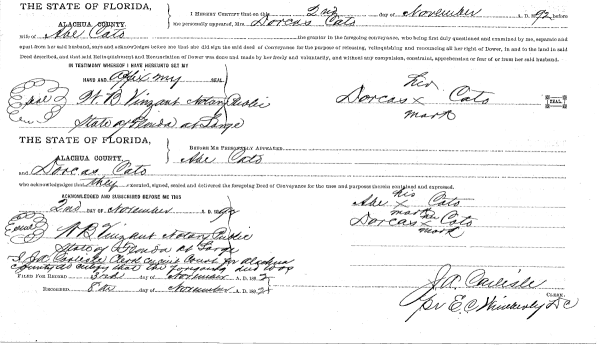 THE STATE OF FLORIDA,
ALACHUA COUNTY.
I HEREBY CERTIFY that on this 2nd day of November A. D. 1892 before
me personally appeared, Mrs Dorcas Cato
wife of Abe Cato the grantor in the foregoing conveyance, who being first duly questioned and examined by me, separate and
apart from her said husband, says and acknowledges before me that she did sign the said deed of conveyance for the purpose of releasing, relinquishing and renouncing all her right of Dower, in and to the land in said
Deed described, and that said Relinquishment and Renunciation of Dower was done and made by her freely and voluntarily, and without any compulsion, constraint, apprehension or fear of or from her said husband.
IN TESTIMONY WHEREOF I HAVE HEREUNTO SET MY
HAND AND affix my SEAL
Seal W. B. Vinzant Notary Public
State of Florida at Large
her
Dorcas x Cato SEAL
mark
THE STATE OF FLORIDA,
ALACHUA COUNTY.
BEFORE ME PERSONALLY APPEARED Abe Cato
and Dorcas Cato
who acknowledges that they executed, signed, sealed and delivered the foregoing Deed of Conveyance for the uses and purposes therein contained and expressed.
ACKNOWLEDGED AND SUBSCRIBED BEFORE ME THIS
2nd DAY OF November A. D. 1892
Seal W. B. Vinzant Notary Public
State of Florida at Large
his
Abe x Cato
mark her
Dorcas x Cato
mark
I J. A. Carlisle Clerk Circuit Court for Alachua
County do certify that the foregoing deed was
FILED FOR RECORD 3rd day of November A. D. 1892
RECORDED 8th day of November A. D. 1892
J. A. Carlisle CLERK,
pr E. C. Wimberly DC